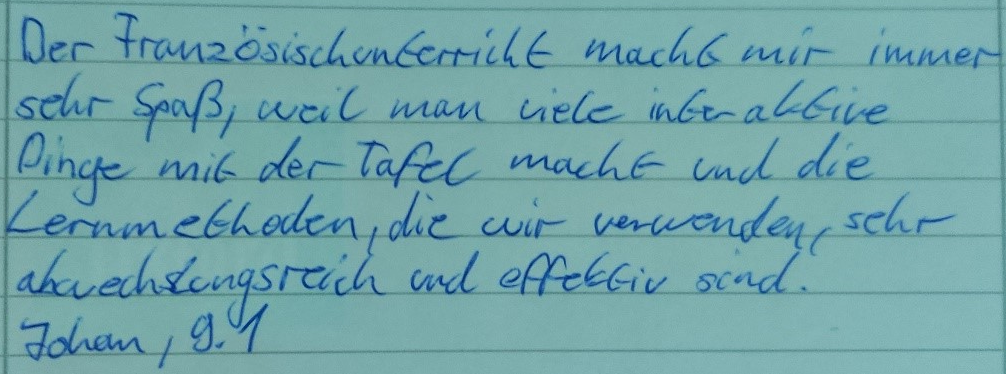 Der Französischunterricht macht mir immer
sehr Spaß, weil man viele interaktive
Dinge mit der Tafel macht und die
Lernmethoden, die wir verwenden, sehr
abwechslungsreich und effektiv sind.
Johan, 9.1